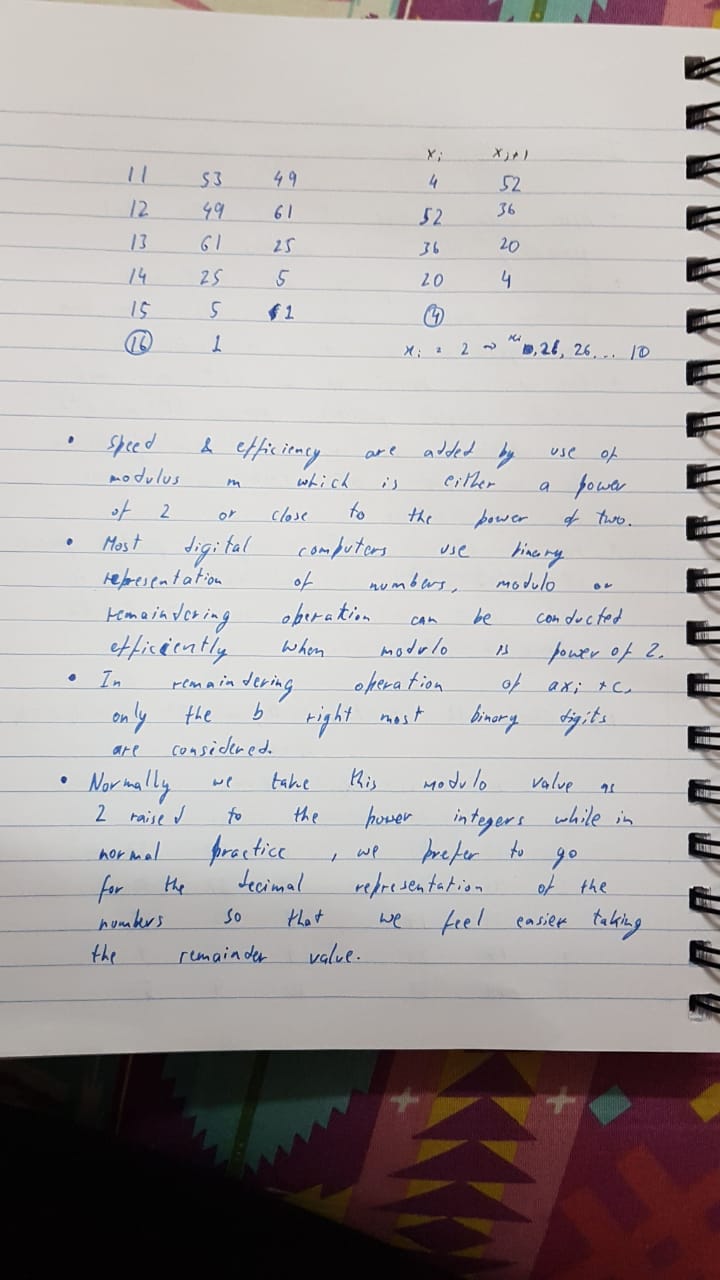 xi xj+1
11 53 49 4 52
12 49 61 52 36
13 61 25 36 20
14 25 5 20 4
15 5 1 4
16 1 xi = 2 → 26, 26... 10
• Speed & efficiency are added by use of
modulus m which is either a power
of 2 or close to the power of two.
• Most digital computers use binary
representation of numbers, modulo or
remaindering operation can be conducted
efficiently when modulo is power of 2.
• In remaindering operation of axi + c,
only the b right most binary digits
are considered.
• Normally we take this modulo value as
2 raised to the power integers while in
normal practice, we prefer to go
for the decimal representation of the
numbers so that we feel easier taking
the remainder value.